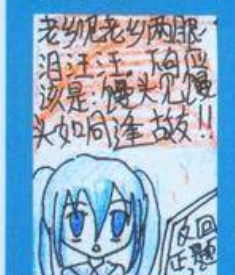 老乡见老乡两眼
泪汪汪. 下句应
该是:馒头见馒
头如同逢故友!!
返回
正题